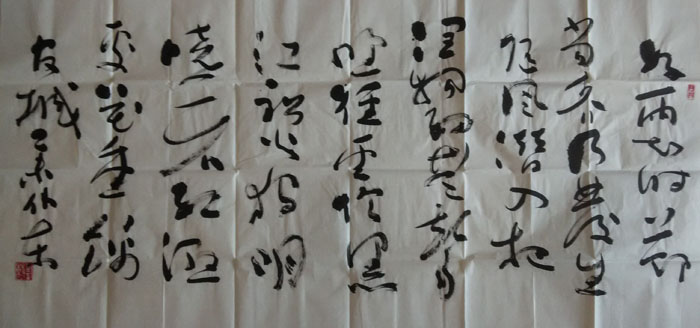 好雨知时节
当春乃发生
随风潜入夜
润物细无声
野径云俱黑
江船火独明
晓看红湿
处花重锦
官城乙未仲